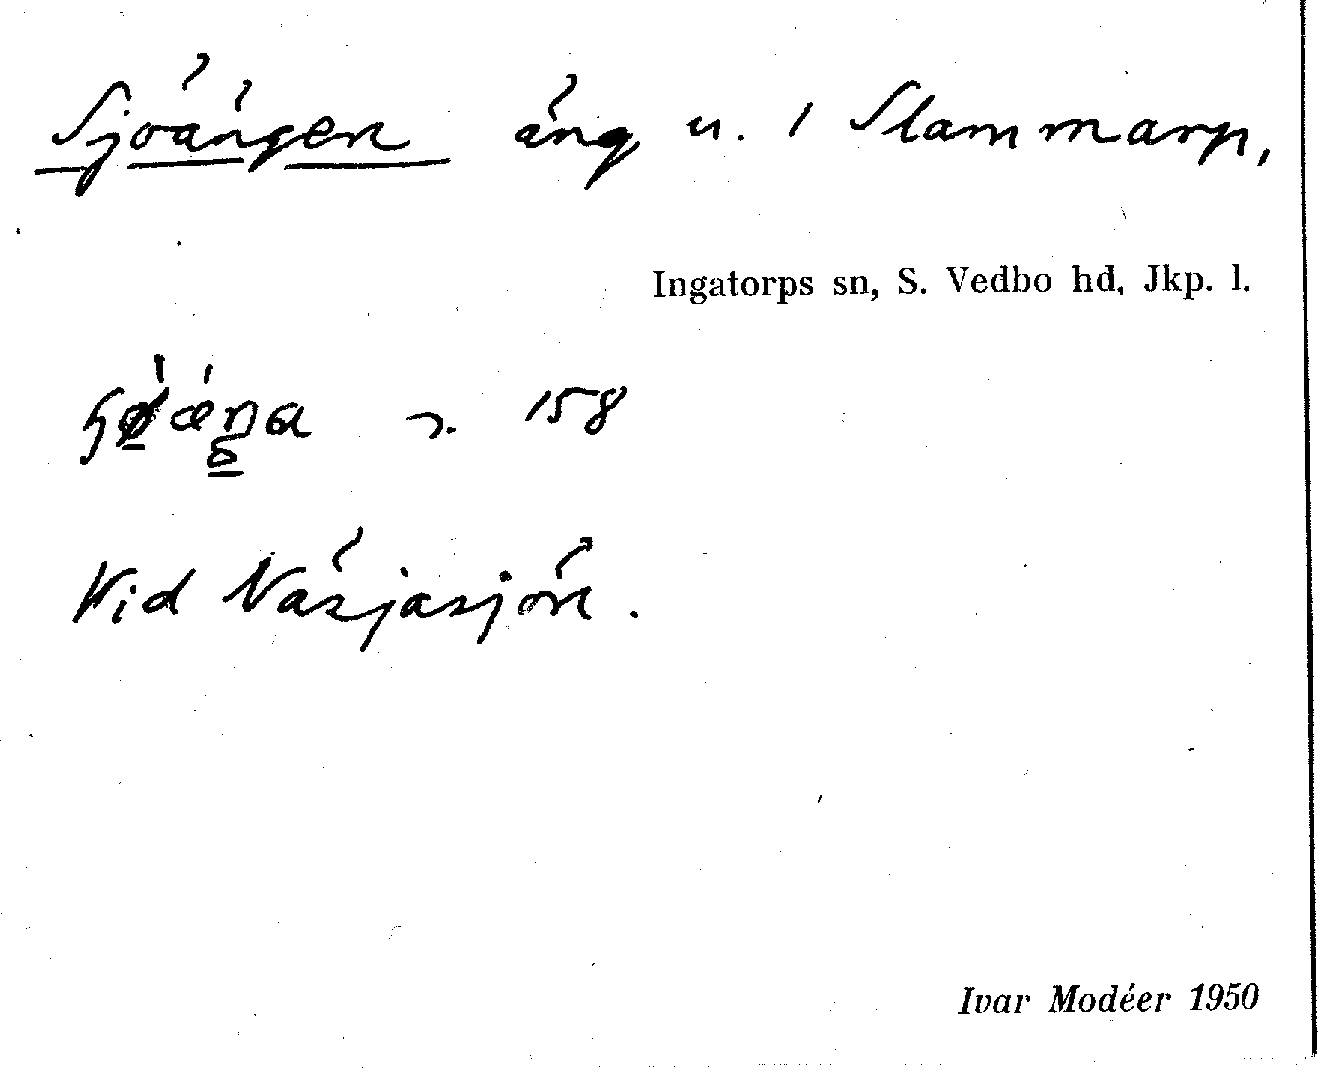 Sjöängen äng u. 1 Slammarp,
Ingatorps sn, S. Vedbo hd, Jkp. l.
158
Vid Näsjasjön.
Ivar Modéer 1950